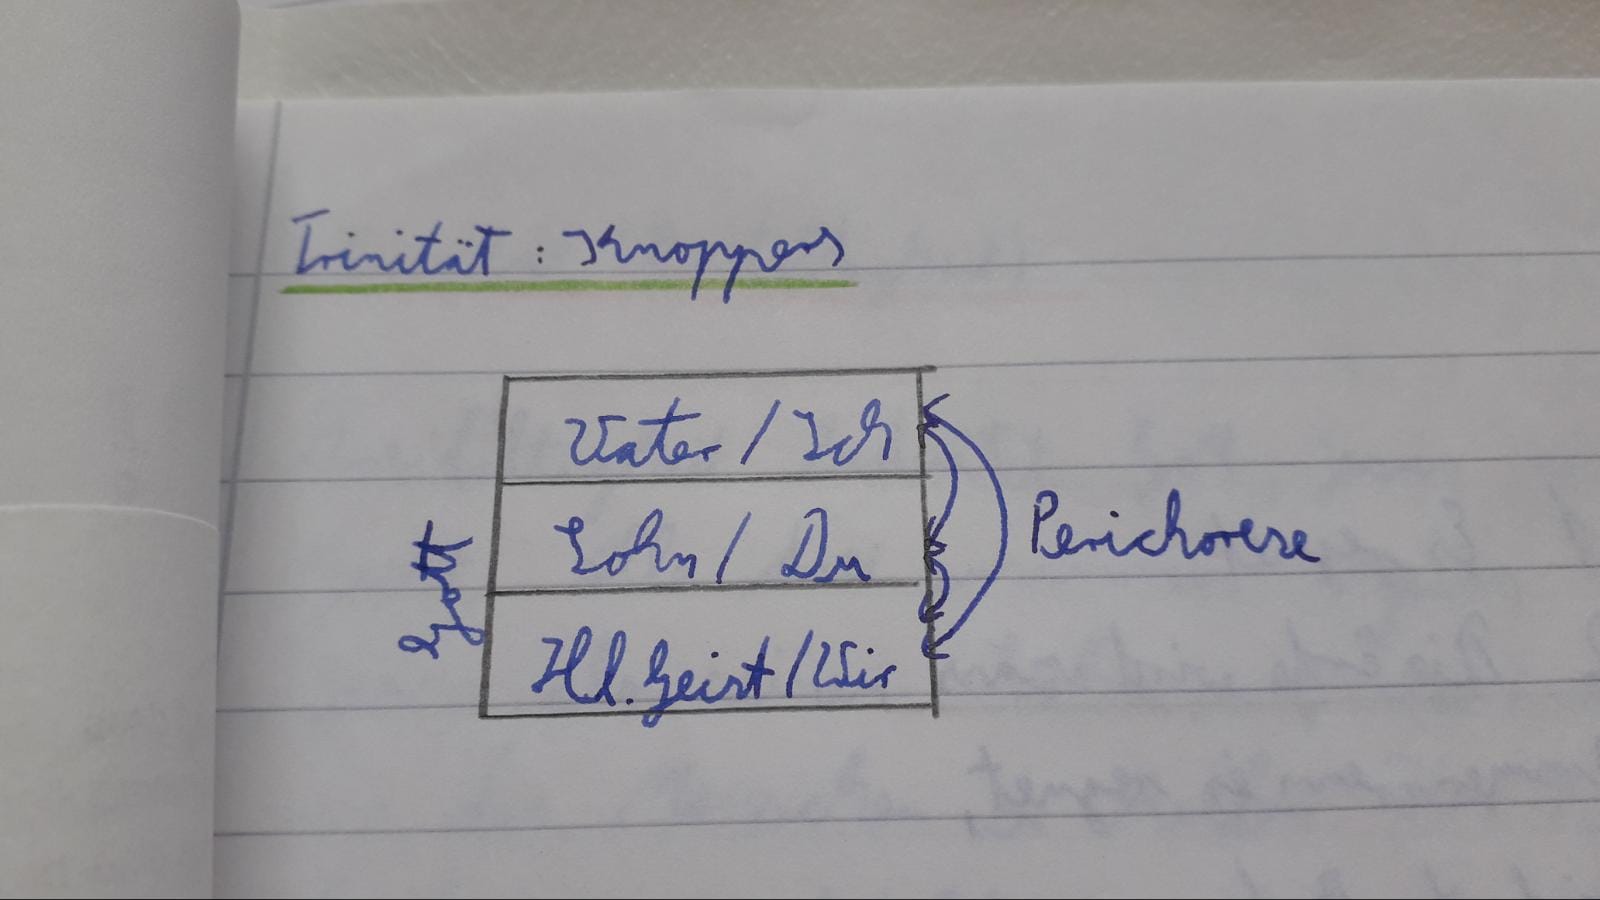 Trinität : Knoppers
Vater / Ich
Sohn / Du
Hl. Geist / Wir
Gott
Perichorese